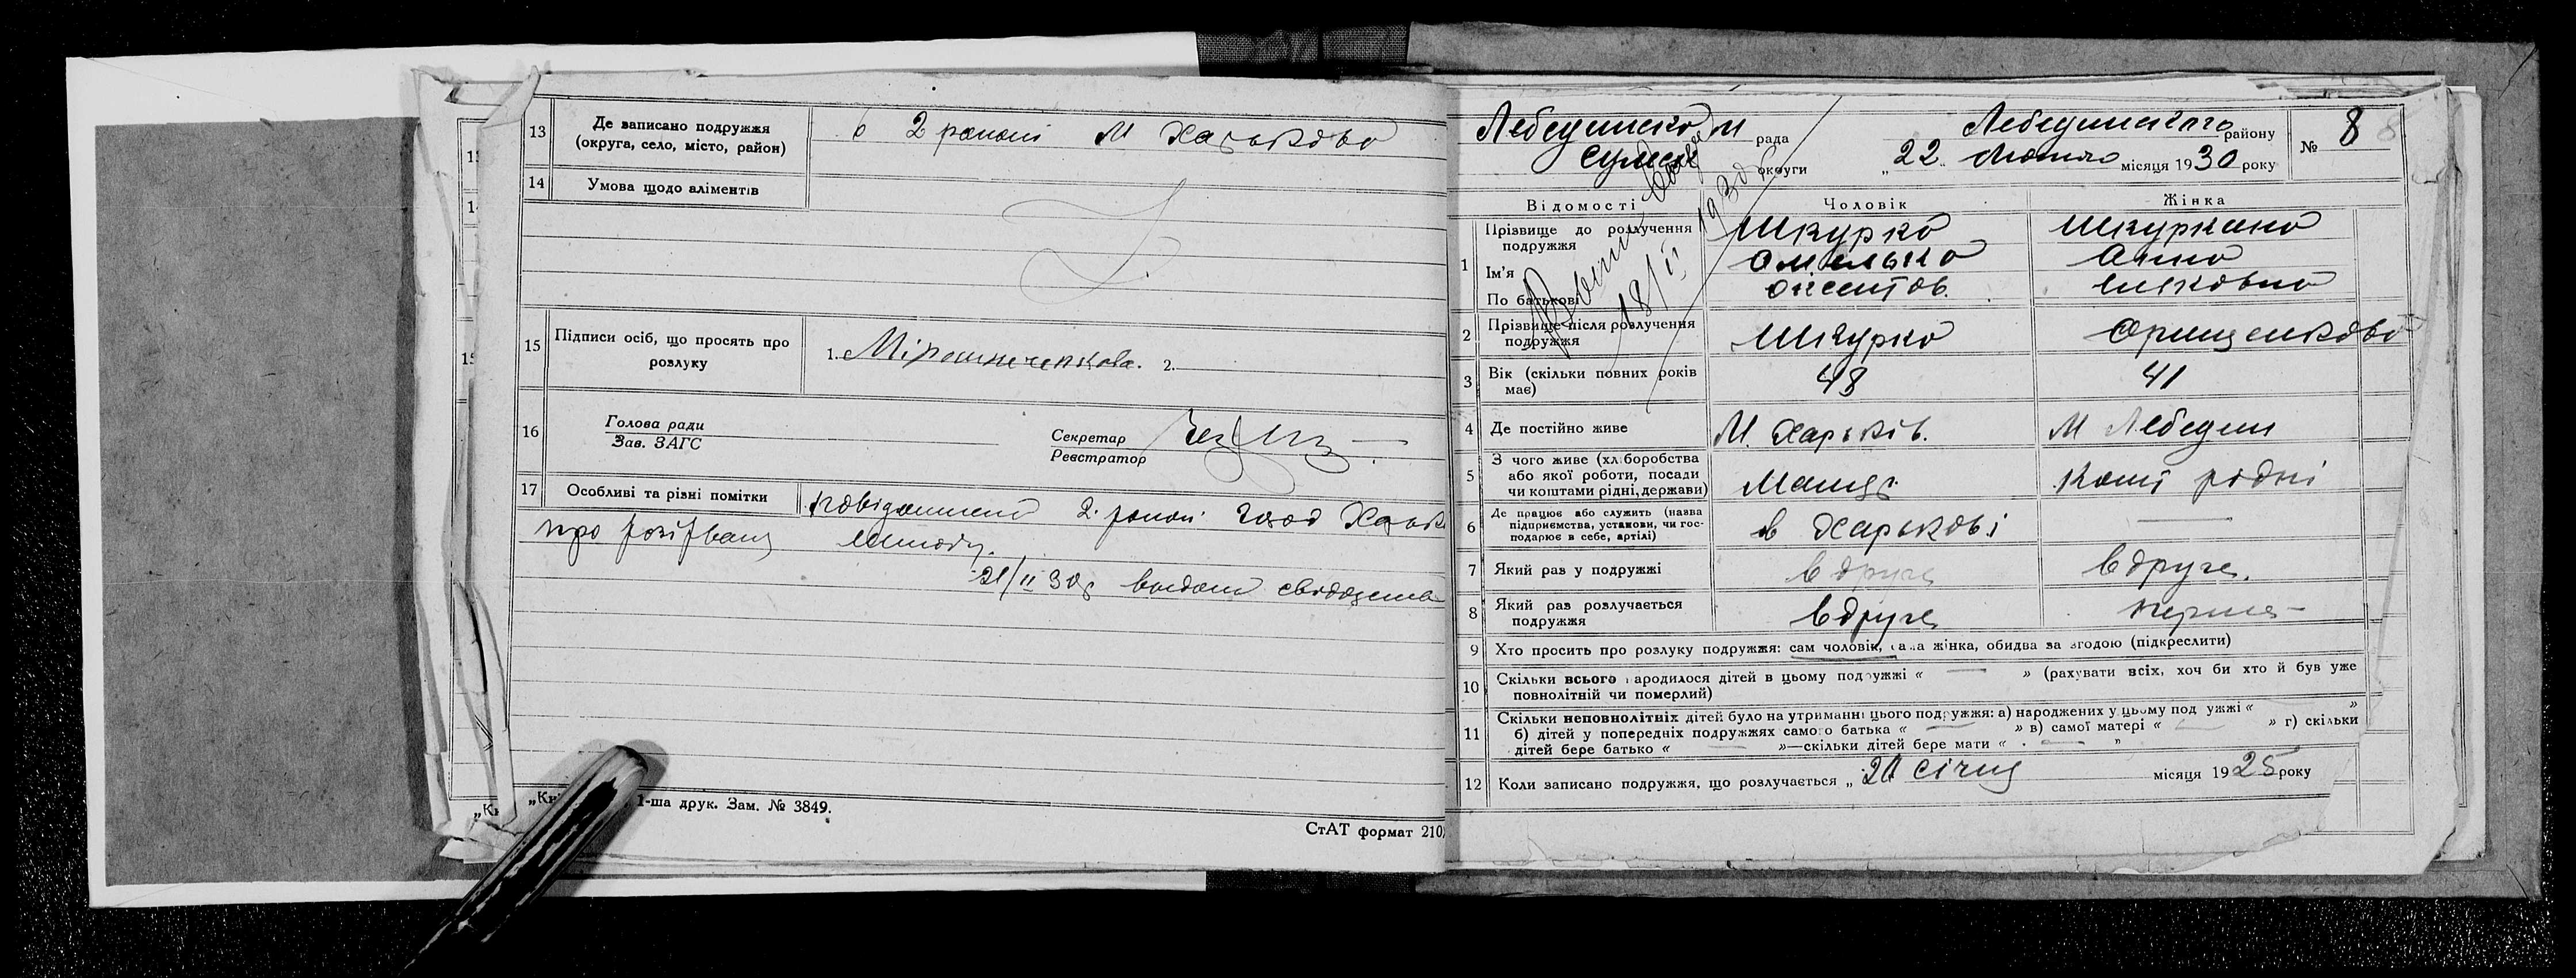 13 Де записано подружжя (округа, село, місто, район) в 2 районі М Харькова
14 Умова щодо аліментів
15 Підписи осіб, що просять про розлуку 1. Мірошниченкова. 2.
16 Голова ради
Зав. ЗАГС
Секретар
Реєстратор
17 Особливі та різні помітки 2. районі
про
21/II 30р видани свідоцтва
1-ша друк. Зам. № 3849.
СтАТ формат 210
рада Лебединського району № 8
Сумск округи „22„ Лютого місяця 1930 року
18/II 1930р
Відомості Чоловік Жінка
1 Прізвище до розлучення подружжя Шкурко Шкуркина
Ім'я Омелько Анна
По батькові
2 Прізвище після розлучення подружжя Шкурко Орищенкова
3 Вік (скільки повних років має) 48 41
4 Де постійно живе М. Харьків. М Лебедин
5 З чого живе (хліборобства або якої роботи, посади чи коштами рідні, держави) Кошт рідні
6 Де працює або служить (назва підприємства, установи, чи господарює в себе, артілі) в Харькові —
7 Який раз у подружжі вдруге вдруге.
8 Який раз розлучається подружжя вдруге перше
9 Хто просить про розлуку подружжя: сам чоловік, сама жінка, обидва за згодою (підкреслити)
10 Скільки всього народилося дітей в цьому подружжі « — » (рахувати всіх, хоч би хто й був уже
повнолітній чи померлий)
11 Скільки неповнолітніх дітей було на утриманні цього подружжя: а) народжених у цьому подружжі « »
б) дітей у попередніх подружжях самого батька « — » в) самої матері « — » г) скільки
дітей бере батько « — »—скільки дітей бере мати « — »
12 Коли записано подружжя, що розлучається „ 21 січня місяця 1925 року